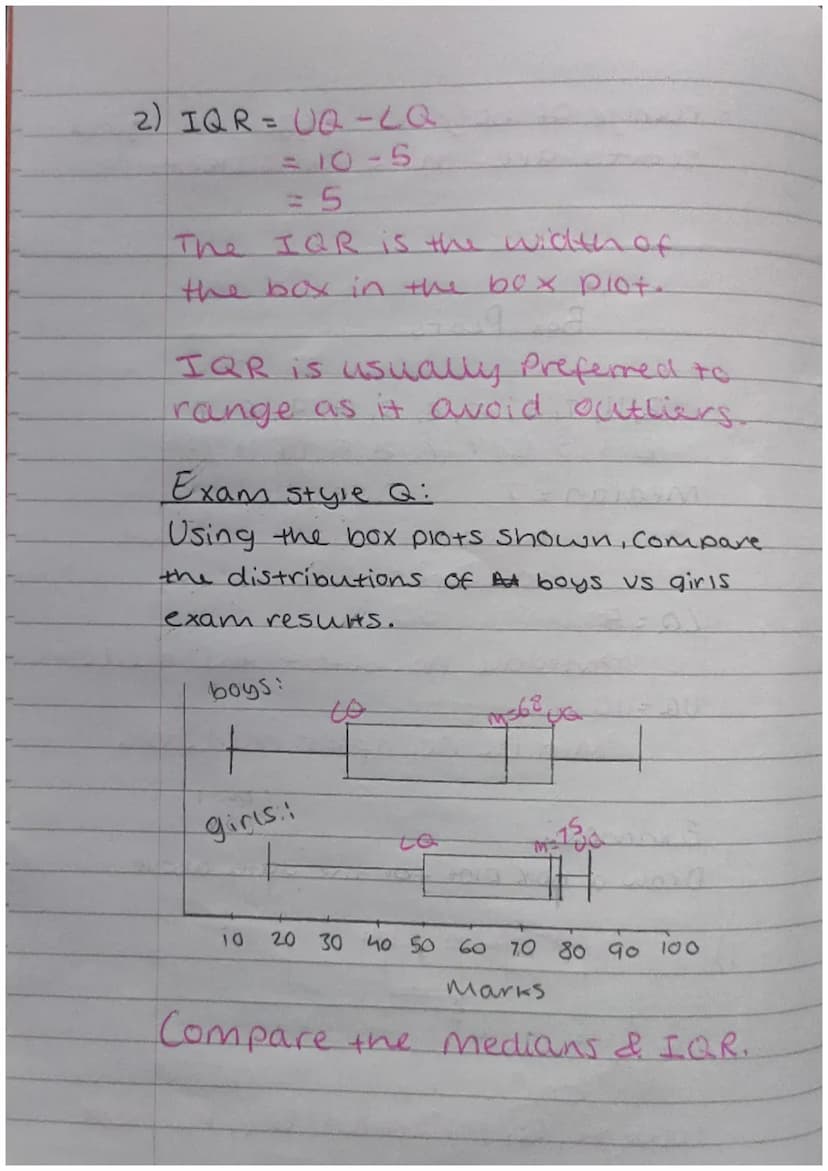 2) IQR = UQ - LQ
= 10 - 5
= 5
The IQR is the width of
the box in the box plot.
IQR is usually preferred to
range as it avoid outliers.
Exam style Q:
Using the box plots shown, compare
the distributions of boys vs girls
exam results.
boys:
LQ m=68 UQ
girls:
LQ m=75 UQ
10 20 30 40 50 60 70 80 90 100
Marks
Compare the medians & IQR.